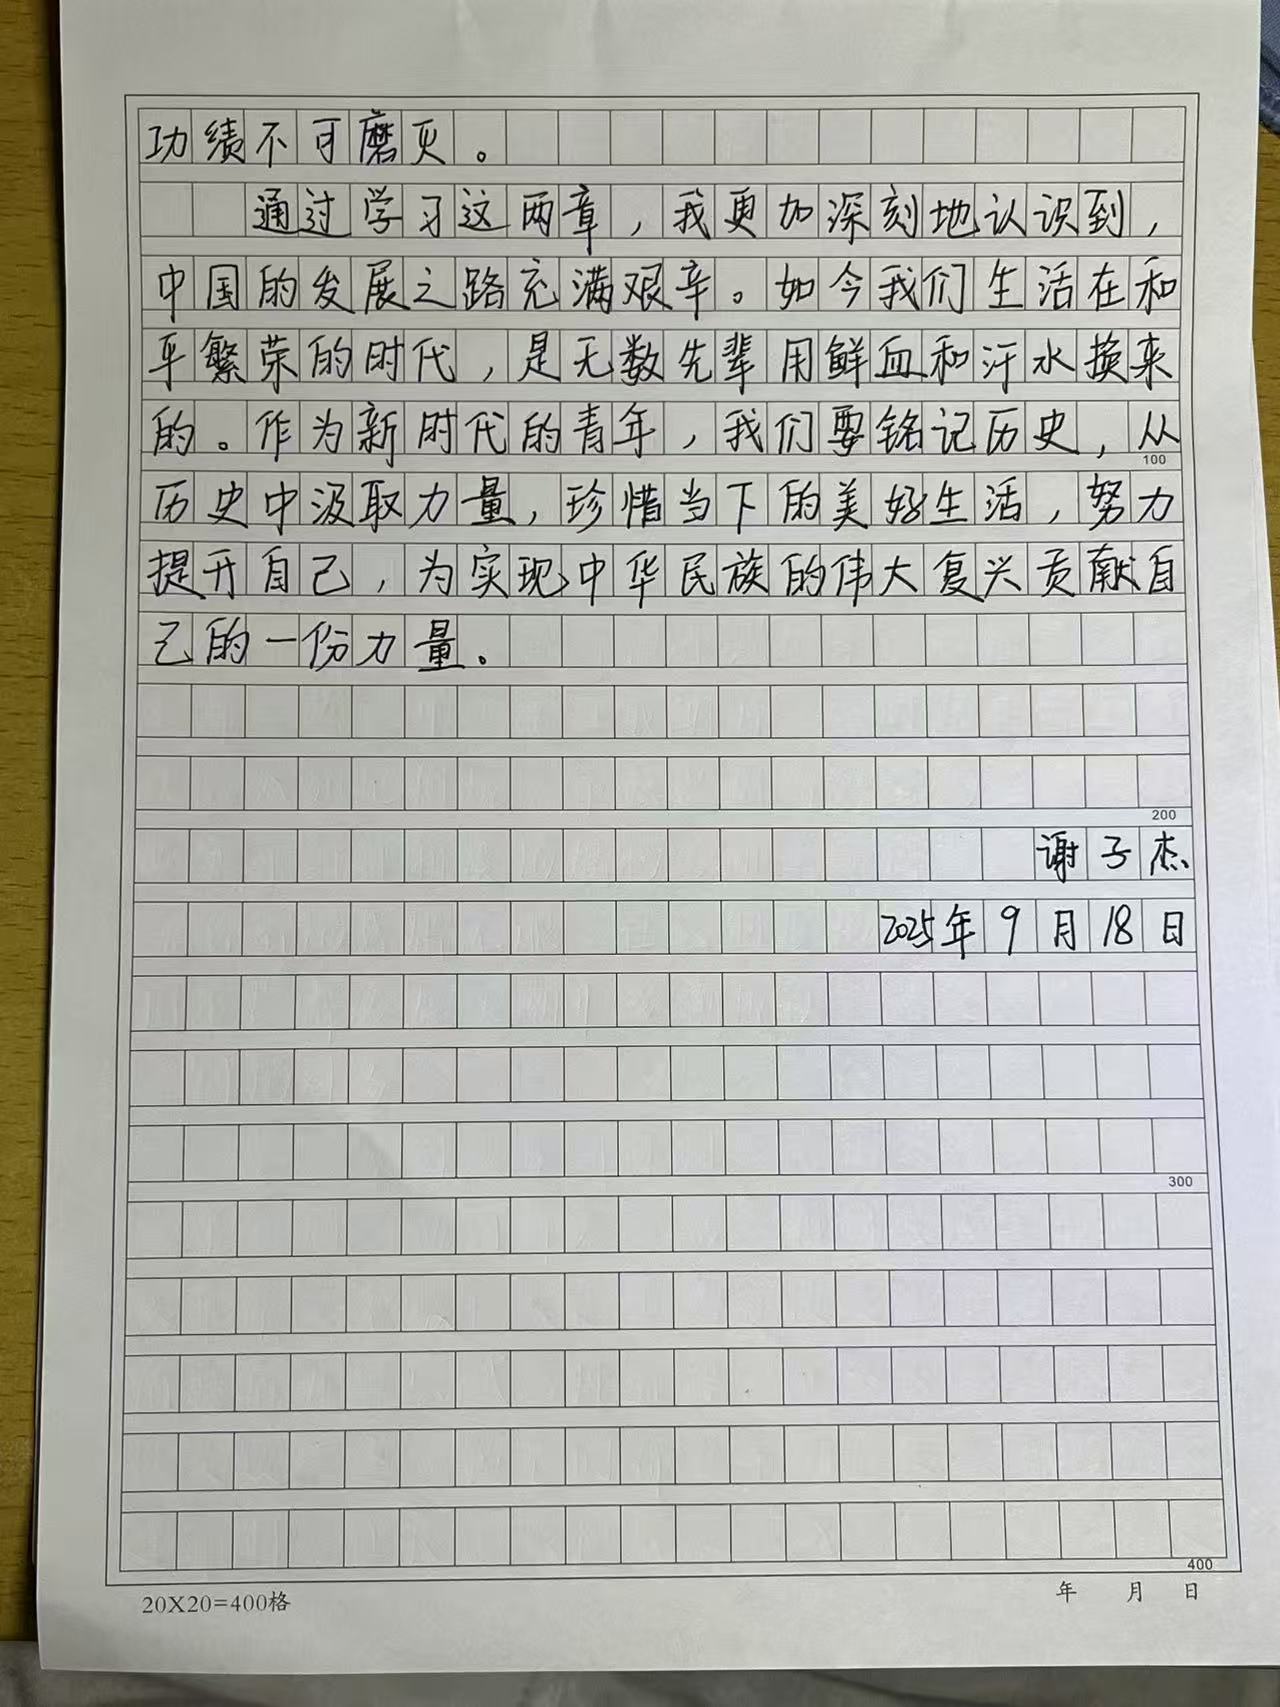 功绩不可磨灭。
通过学习这两章，我更加深刻地认识到，
中国的发展之路充满艰辛。如今我们生活在和
平繁荣的时代，是无数先辈用鲜血和汗水换来
的。作为新时代的青年，我们要铭记历史，从
100
历史中汲取力量，珍惜当下的美好生活，努力
提升自己，为实现中华民族的伟大复兴贡献自
己的一份力量。
200
谢子杰
2025年9月18日
300
400
20X20=400格 年 月 日